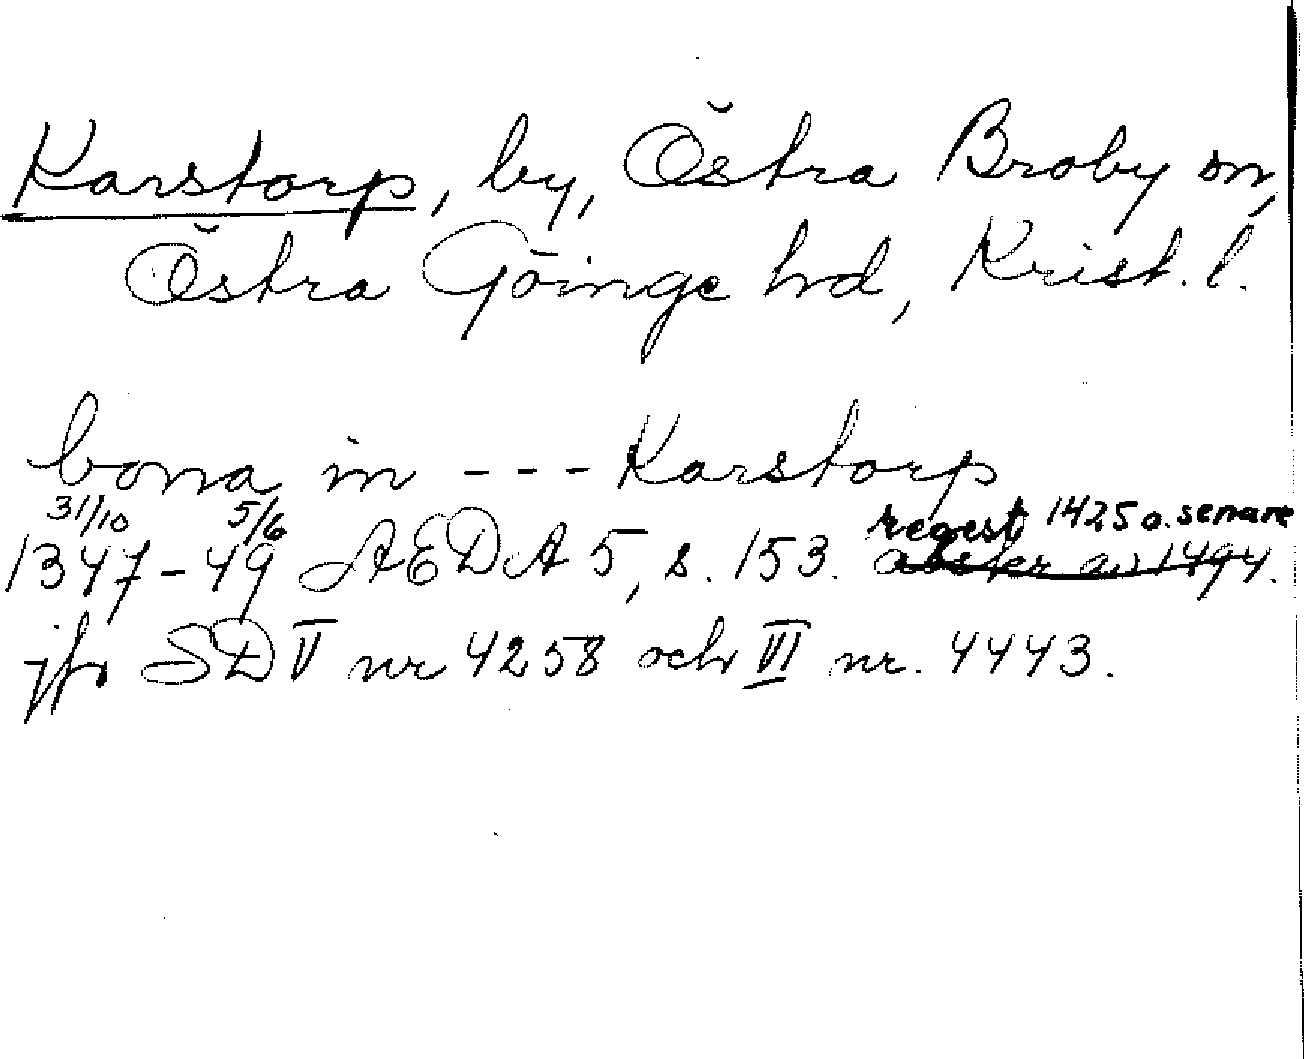 Karstorp, by, Östra Broby sn,
Östra Göinge hd, Krist. l.
bona in - - - Karstorp
31/10 5/6 regest 1425 o. senare
1347-49 AEDA 5, s. 153. avskr av 1494.
jfr SD V nr 4258 och VI nr. 4443.